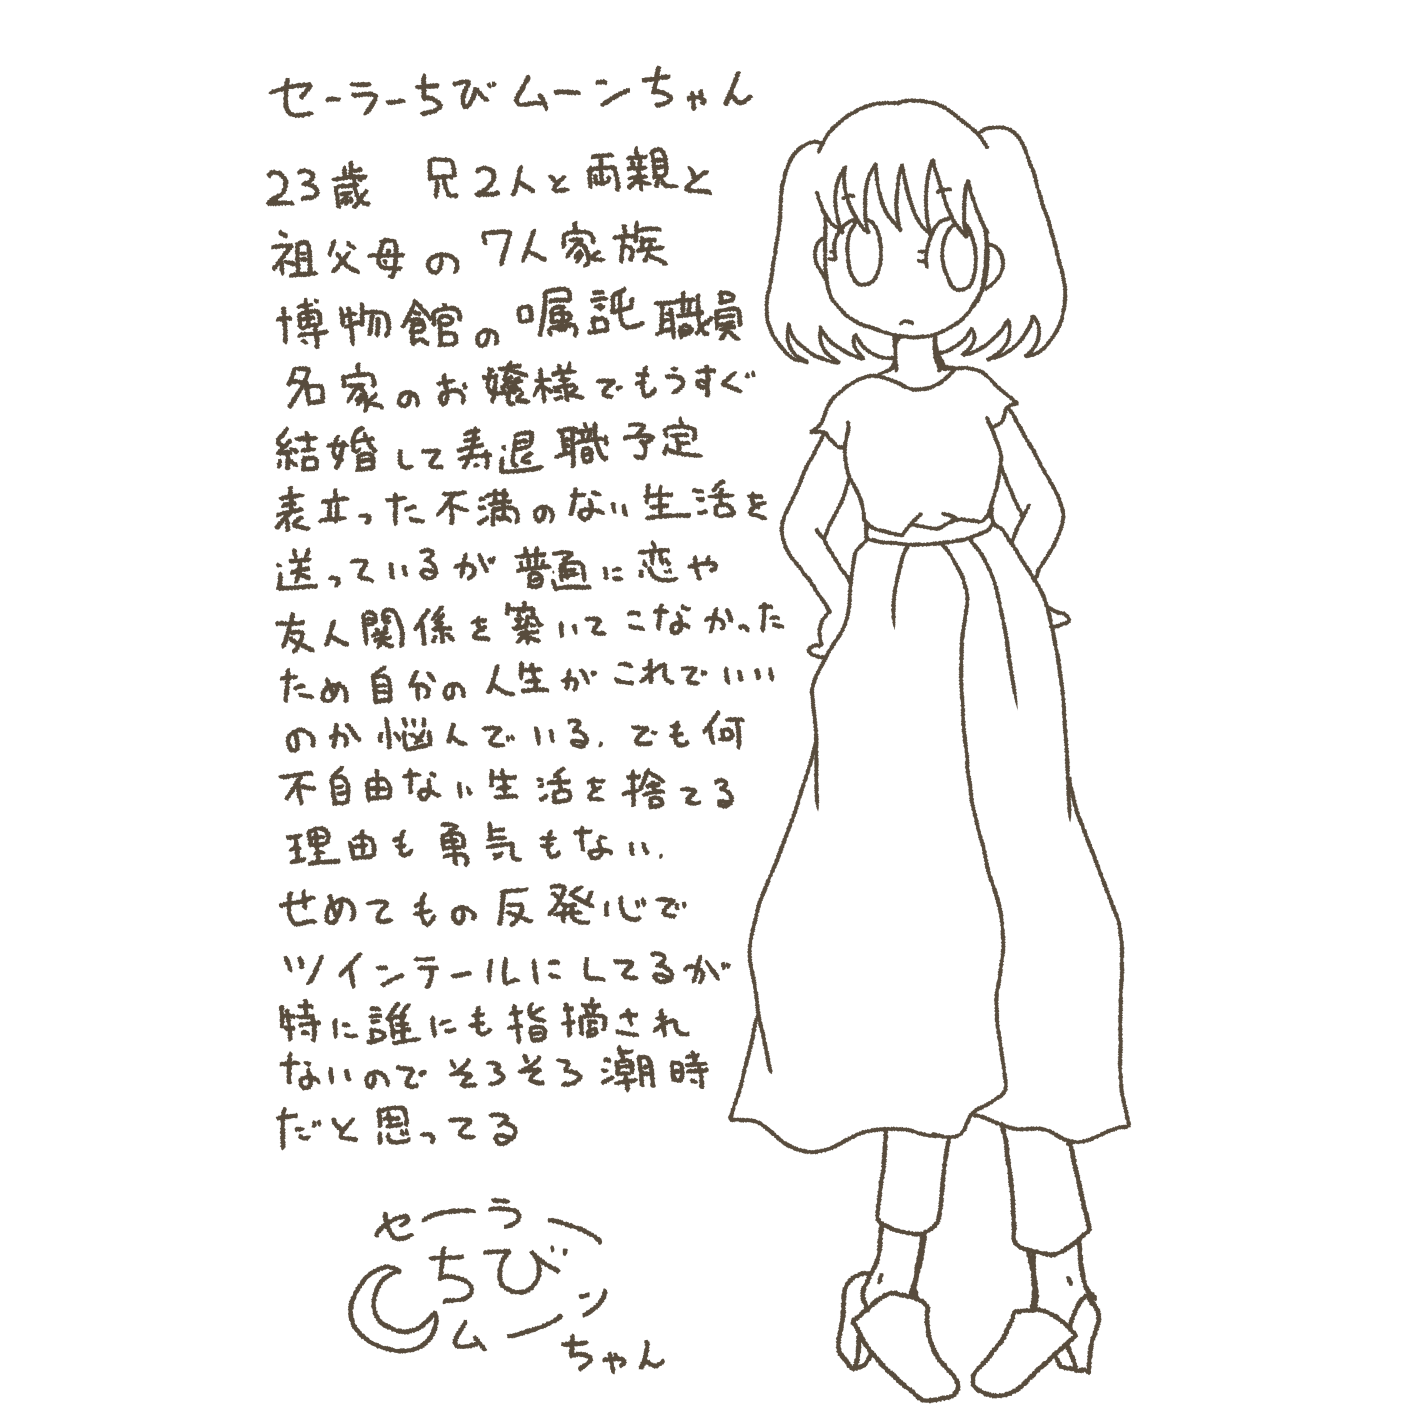 セーラーちびムーンちゃん
23歳 兄2人と両親と
祖父母の7人家族
博物館の嘱託職員
名家のお嬢様でもうすぐ
結婚して寿退職予定
表立った不満のない生活を
送っているが普通に恋や
友人関係を築いてこなかった
ため自分の人生がこれでいい
のか悩んでいる.でも何
不自由ない生活を捨てる
理由も勇気もない.
せめてもの反発心で
ツインテールにしてるが
特に誰にも指摘され
ないのでそろそろ潮時
だと思ってる
セーラー
ちび
ムーン
ちゃん